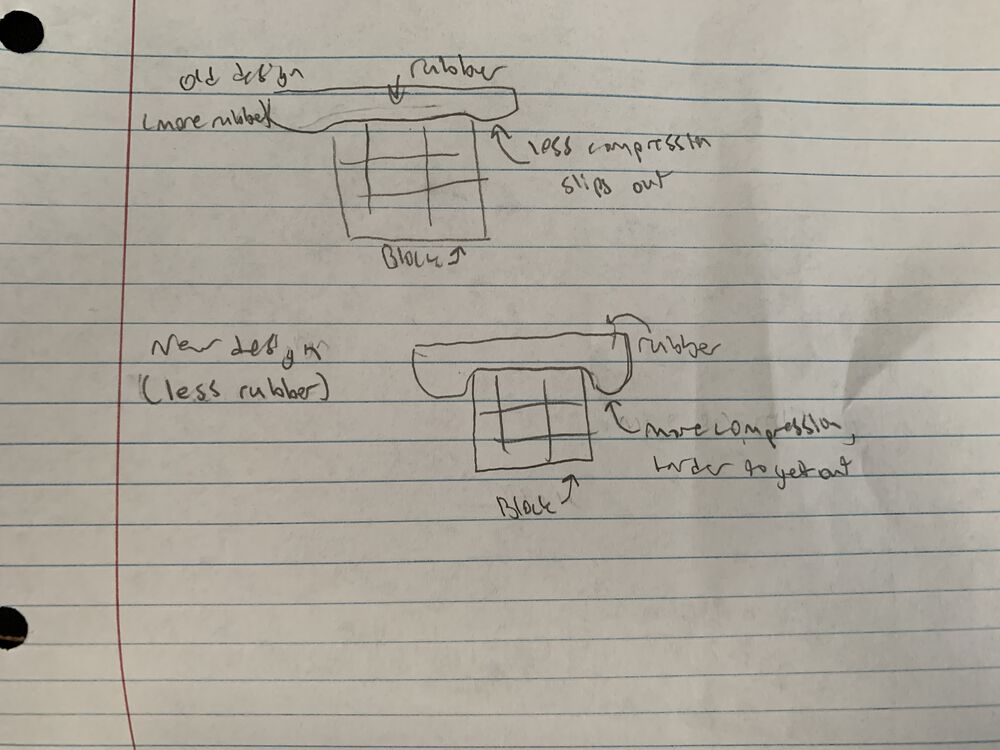 old design
rubber
(more rubber)
less compression
slips out
Block
New design
(less rubber)
rubber
more compression,
harder to get out
Block